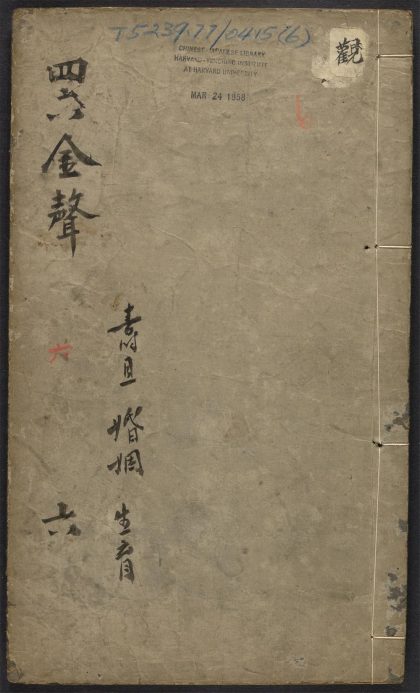 T5239.77/0415(6)
CHINESE-JAPANESE LIBRARY
HARVARD-YENCHING INSTITUTE
AT HARVARD UNIVERSITY
MAR 24 1958
觀
四六金聲
六
六
壽旦 婚姻 生育